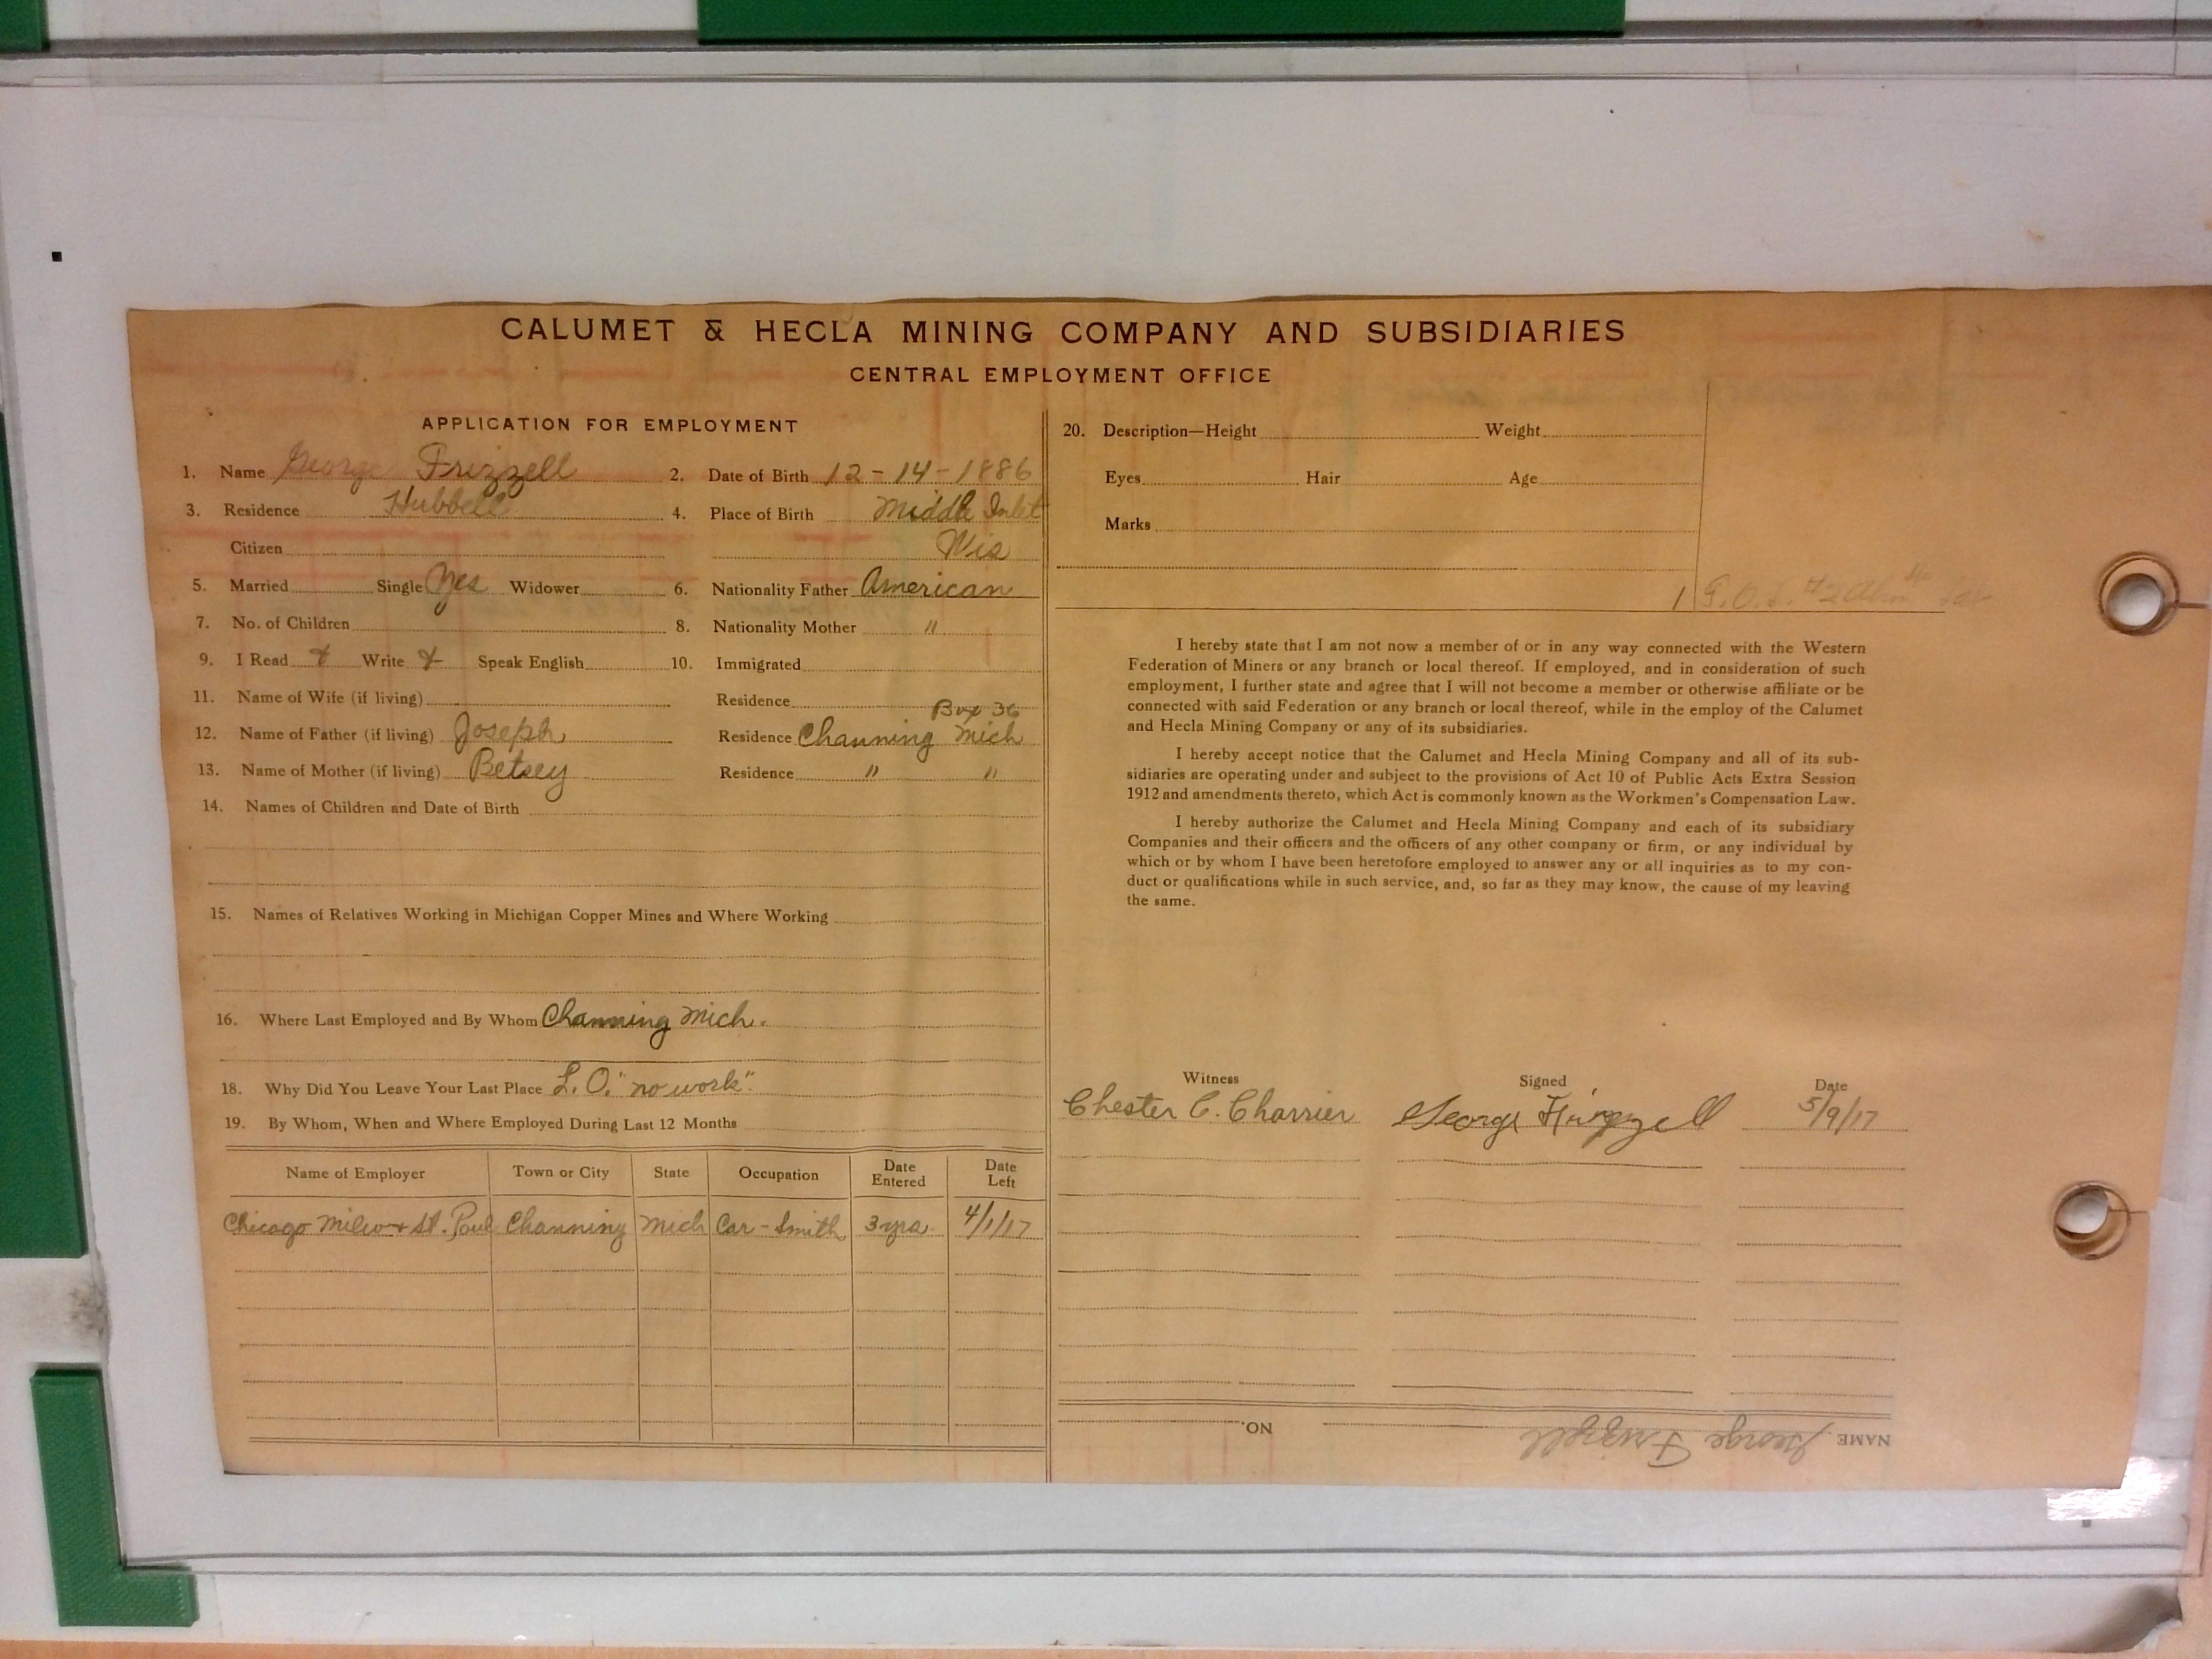 CALUMET & HECLA MINING COMPANY AND SUBSIDIARIES
CENTRAL EMPLOYMENT OFFICE
APPLICATION FOR EMPLOYMENT
1. Name George Frizzell 2. Date of Birth 12-14-1886
3. Residence Hubbell 4. Place of Birth Middle Inlet
Citizen Wis
5. Married Single Yes Widower 6. Nationality Father American
7. No. of Children 8. Nationality Mother "
9. I Read + Write + Speak English 10. Immigrated
11. Name of Wife (if living) Residence
Box 36
12. Name of Father (if living) Joseph Residence Channing Mich
13. Name of Mother (if living) Betsey Residence " "
14. Names of Children and Date of Birth
15. Names of Relatives Working in Michigan Copper Mines and Where Working
16. Where Last Employed and By Whom Channing Mich.
18. Why Did You Leave Your Last Place L.O. "no work"
19. By Whom, When and Where Employed During Last 12 Months
Name of Employer Town or City State Occupation Date Entered Date Left
Chicago Milw + St. Paul Channing Mich Car-Smith 3 yrs. 4/1/17
20. Description—Height Weight
Eyes Hair Age
Marks
I hereby state that I am not now a member of or in any way connected with the Western
Federation of Miners or any branch or local thereof. If employed, and in consideration of such
employment, I further state and agree that I will not become a member or otherwise affiliate or be
connected with said Federation or any branch or local thereof, while in the employ of the Calumet
and Hecla Mining Company or any of its subsidiaries.
I hereby accept notice that the Calumet and Hecla Mining Company and all of its sub-
sidiaries are operating under and subject to the provisions of Act 10 of Public Acts Extra Session
1912 and amendments thereto, which Act is commonly known as the Workmen's Compensation Law.
I hereby authorize the Calumet and Hecla Mining Company and each of its subsidiary
Companies and their officers and the officers of any other company or firm, or any individual by
which or by whom I have been heretofore employed to answer any or all inquiries as to my con-
duct or qualifications while in such service, and, so far as they may know, the cause of my leaving
the same.
Witness Signed Date
Chester C. Charrier George Frizzell 5/9/17
NAME George Frizzell NO.